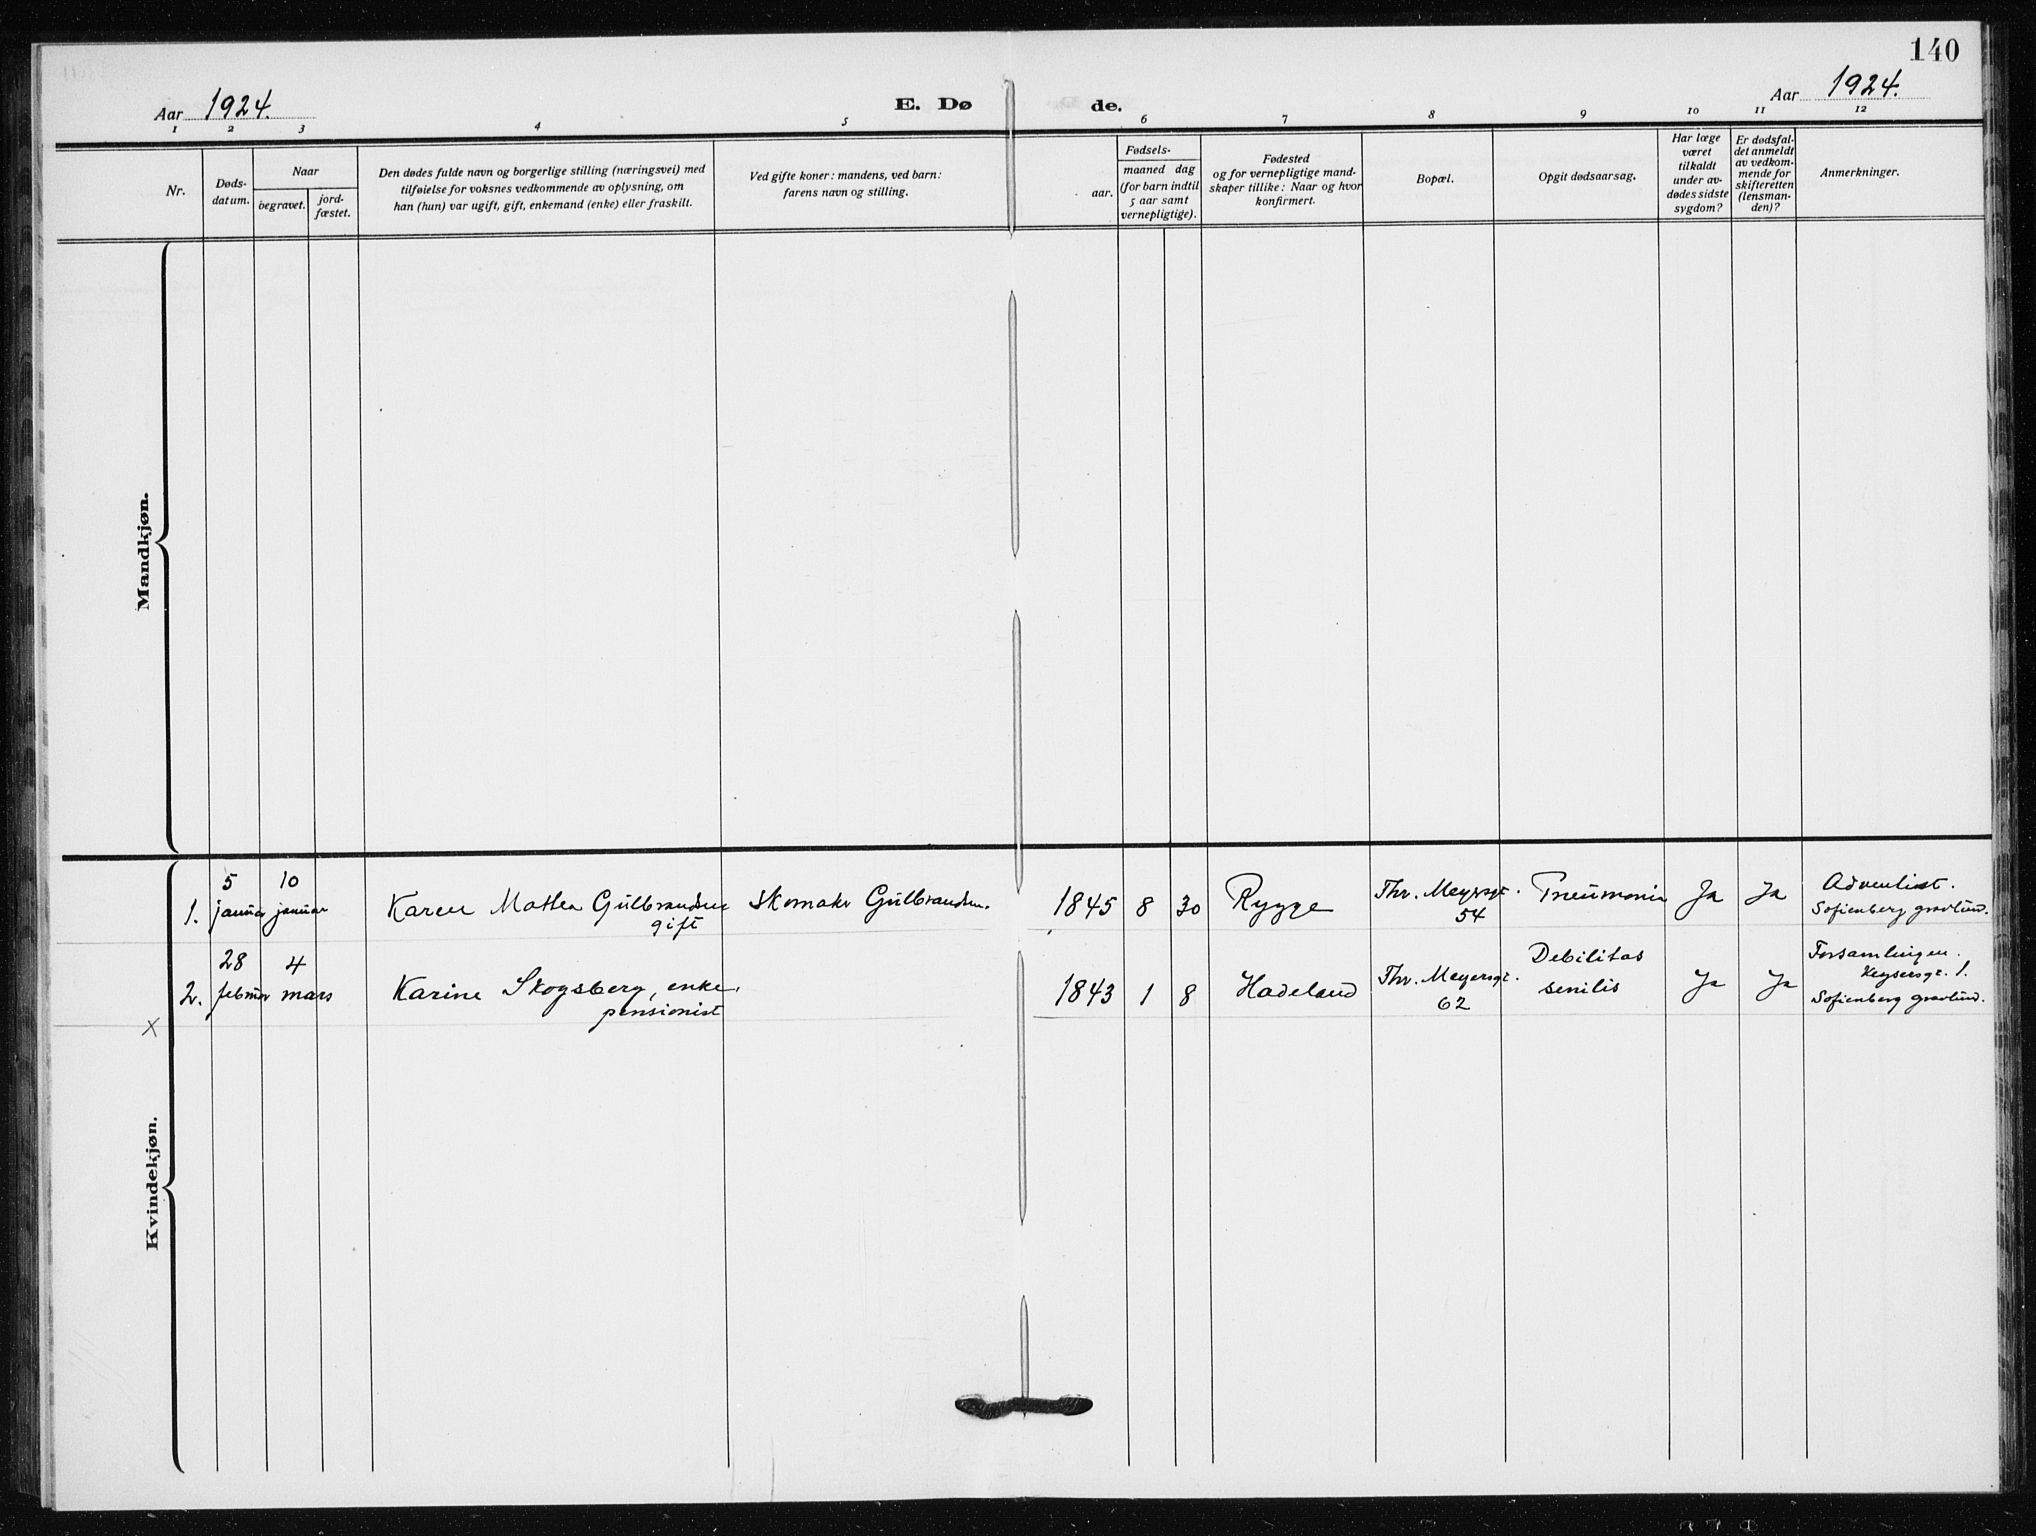 140
Aar 1924.
E. Dø
de.
Aar 1924.
1 2 3 4 5 6 7 8 9 10 11 12
Nr.
Døds-
datum.
Naar
begravet.
jord-
fæstet.
Den dødes fulde navn og borgerlige stilling (næringsvei) med
tilføielse for voksnes vedkommende av oplysning, om
han (hun) var ugift, gift, enkemand (enke) eller fraskilt.
Ved gifte koner: mandens, ved barn:
farens navn og stilling.
Fødsels-
aar.
maaned dag
(for barn indtil
5 aar samt
vernepligtige).
Fødested
og for vernepligtige mand-
skaper tillike: Naar og hvor
konfirmert.
Bopæl.
Opgit dødsaarsag.
Har læge
været
tilkaldt
under av-
dødes sidste
sygdom?
Er dødsfal-
det anmeldt
av vedkom-
mende for
skifteretten
(lensman-
den)?
Anmerkninger.
Mandkjøn.
Kvindekjøn.
1.
5
januar
10
januar
Karen Mathea Gulbrandsen
gift
Skomaker Gulbrandsen.
1845 8 30
Rygge
Thv. Meyersgt.
54
Pneumonia
Ja
Ja
Adventist.
Sofienberg gravlund.
2.
28
februar
4
mars
Karine Skogsberg, enke,
pensionist
1843 1 8
Hadeland
Thv. Meyersgt.
62
Debilitas
senilis
Ja
Ja
Forsamlingen.
Keysersgt. 1.
Sofienberg gravlund.
x